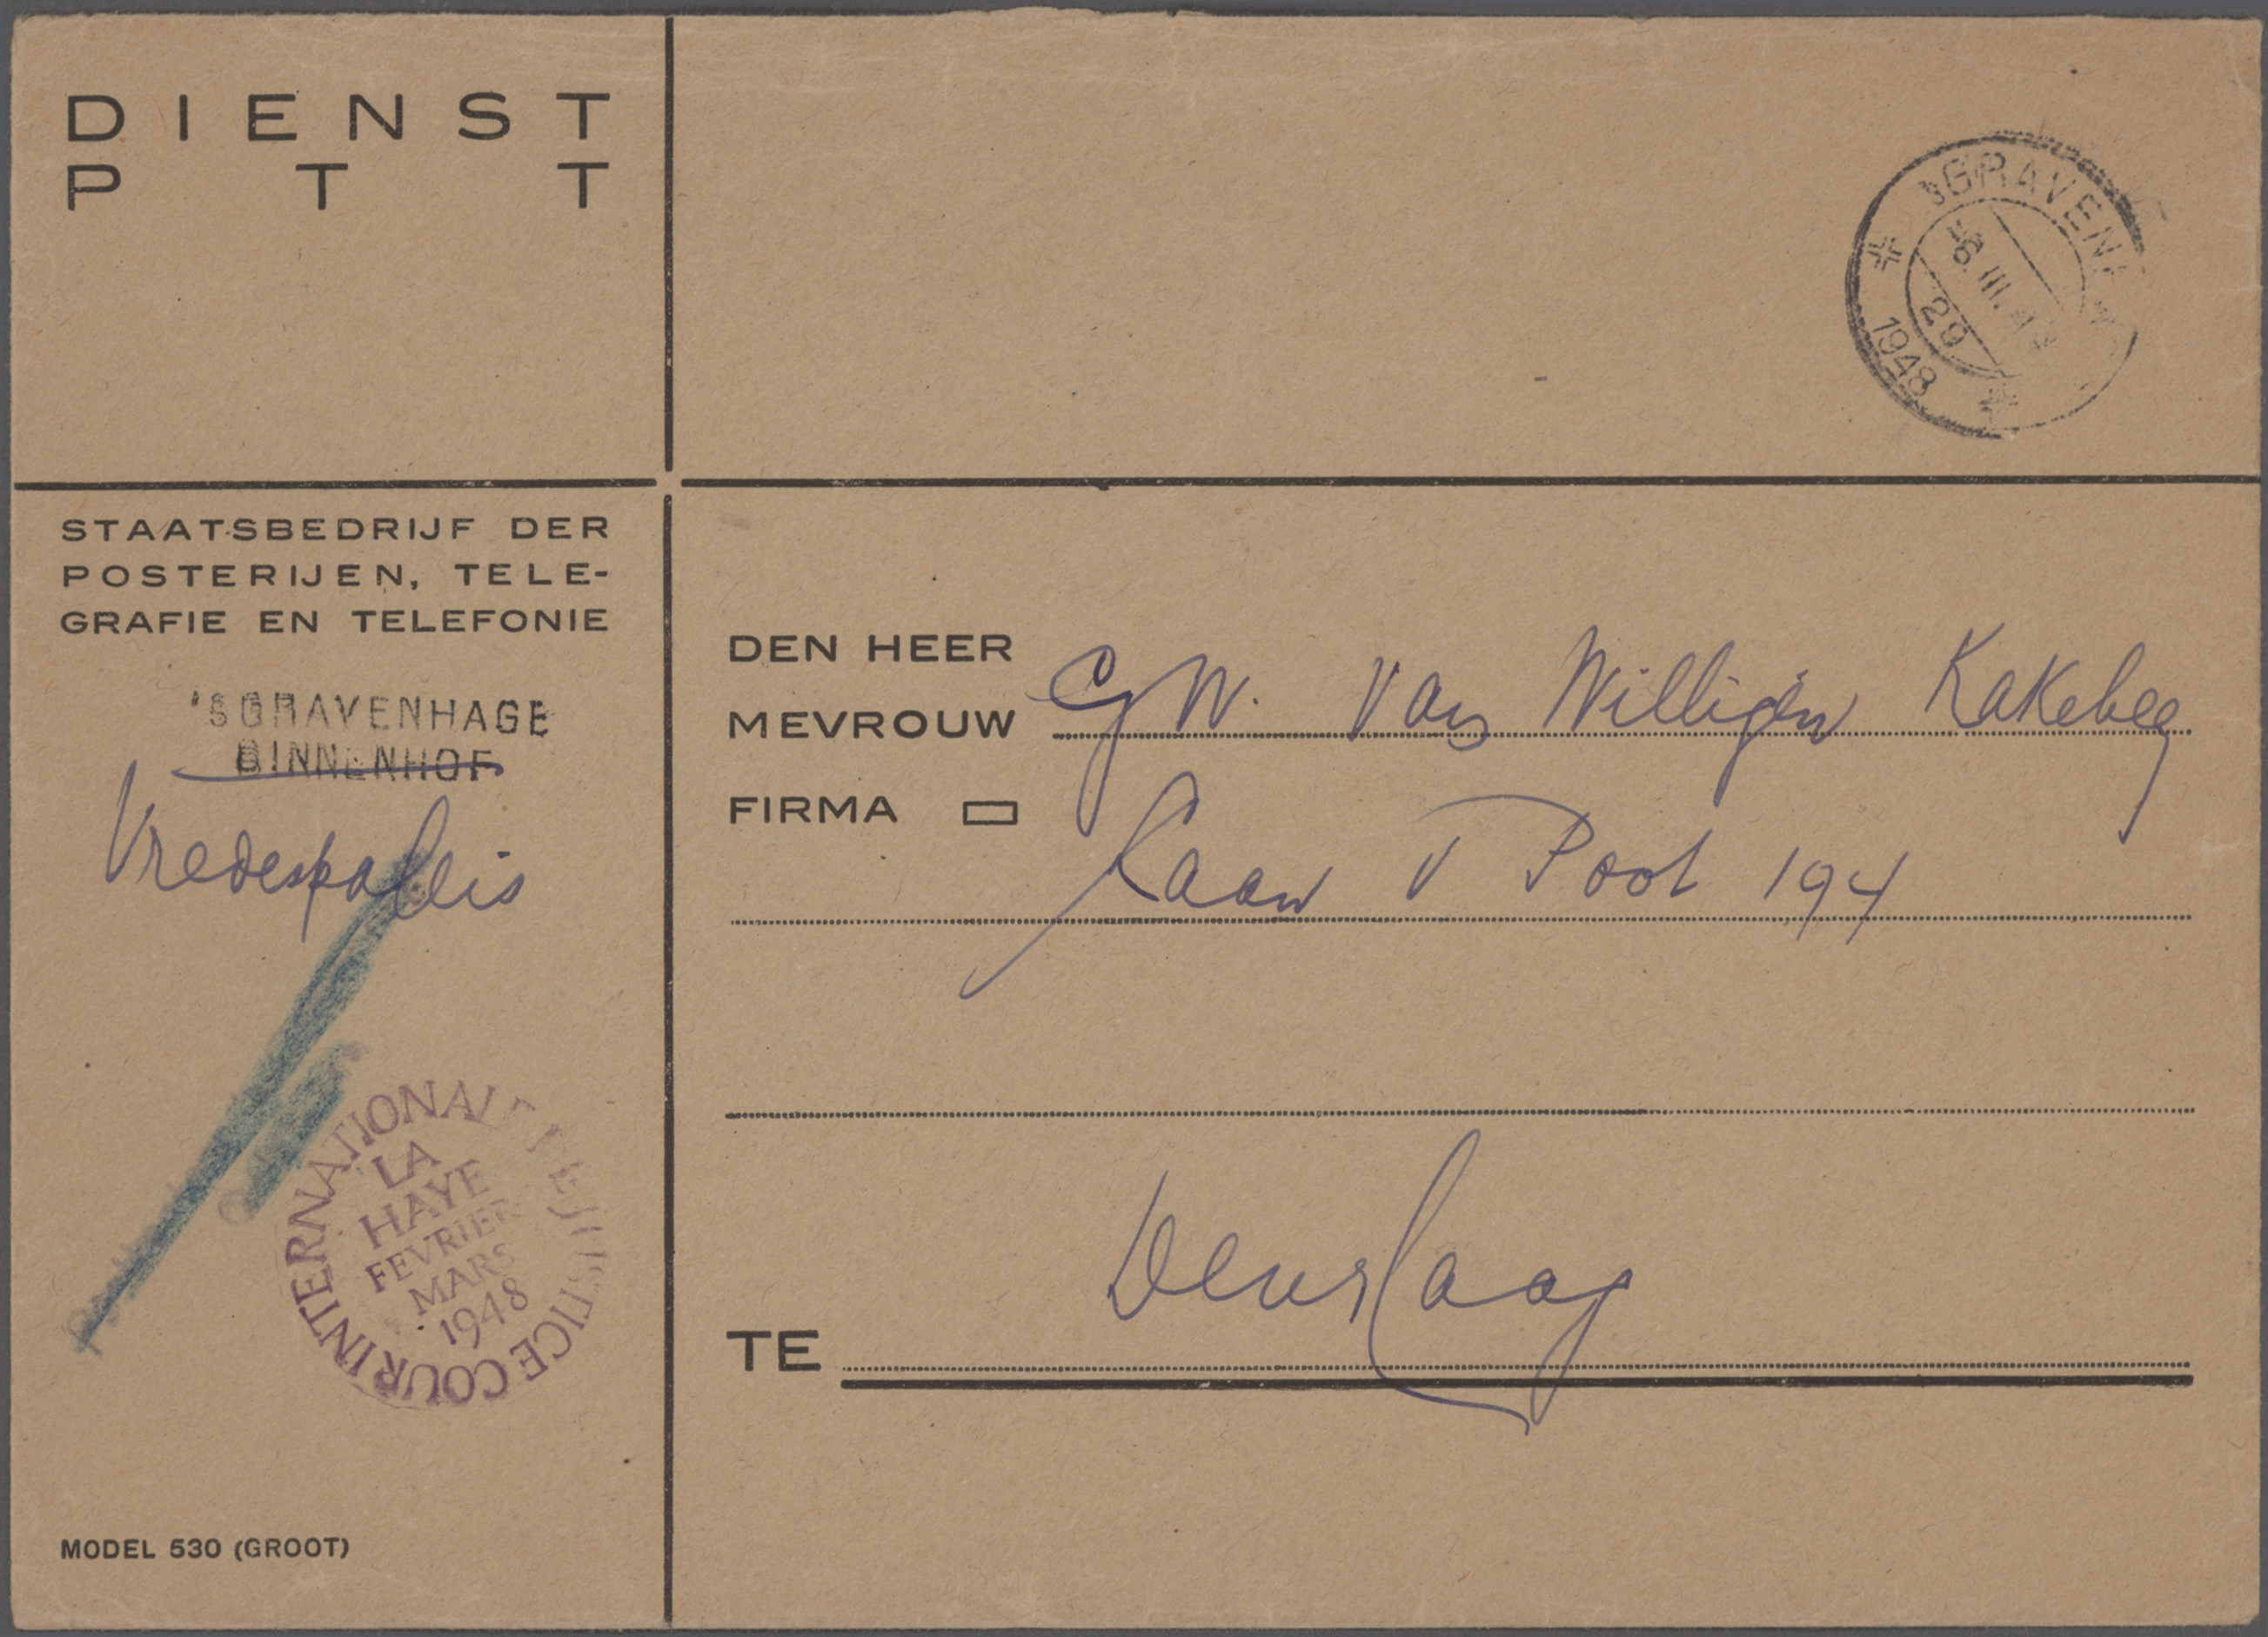 DIENST
PTT
'SGRAVEN
III
29
1948
STAATSBEDRIJF DER
POSTERIJEN, TELE-
GRAFIE EN TELEFONIE
'SGRAVENHAGE
BINNENHOF
Vredespaleis
COUR INTERNATIONALE DE JUSTICE
LA
HAYE
FEVRIER
MARS
1948
MODEL 530 (GROOT)
DEN HEER
MEVROUW
FIRMA
W. van Willigen
Laan v Poot 194
TE Den Haag